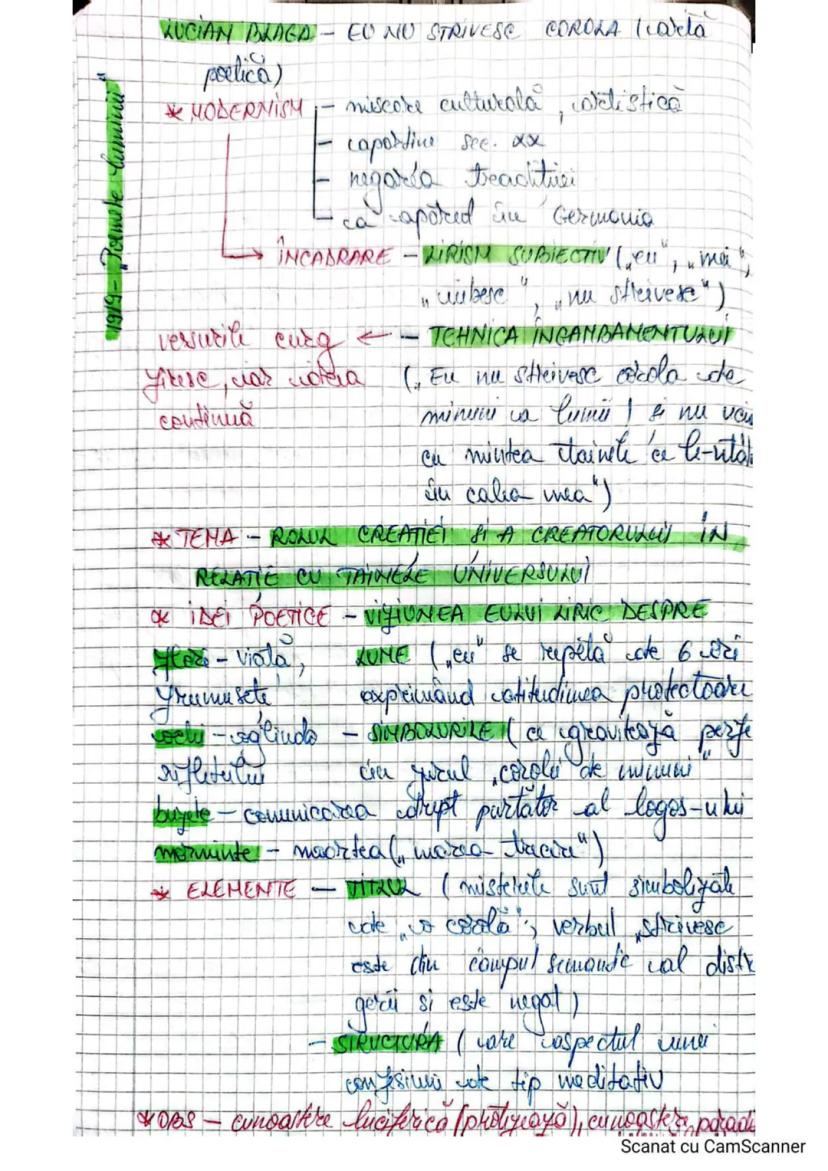 LUCIAN BLAGA - EU NU STRIVESC COROLA (artă
poetică)
1919 - "Poemele luminii"
* MODERNISM - miscare culturală, artistică
- aparține sec. XX
- negarea tradiției
- a apărut în Germania
ÎNCADRARE - LIRISM SUBIECTIV („eu", „mei",
„iubesc", „nu strivesc")
versurile curg ← - TEHNICA INGAMBAMENTULUI
firesc, iar ideea („Eu nu strivesc corola de
continuă minuni a lumii / și nu uci
cu mintea tainele ce le-ntâl
în calea mea")
* TEMA - ROLUL CREAȚIEI ȘI A CREATORULUI ÎN
RELAȚIE CU TAINELE UNIVERSULUI
* IDEI POETICE - VIZIUNEA EULUI LIRIC DESPRE
flori - viață, LUME („eu" se repetă de 6 ori
frumusețe exprimând atitudinea protectoare
ochi - oglinda - SIMBOLURILE (ce gravitează
sufletului în jurul „corolei de minuni"
buzele - comunicarea drept purtător al logos-ului
morminte - moartea („marea trecere")
* ELEMENTE - TITLUL (misterele sunt simbolizate
de „o corolă"; verbul „strivesc
este din câmpul semantic al distr
gerii si este negat)
- STRUCTURA (are aspectul unei
confesiuni de tip meditativ
* OBS - cunoastere luciferică (protejează), cunoastere paradi
Scanat cu CamScanner